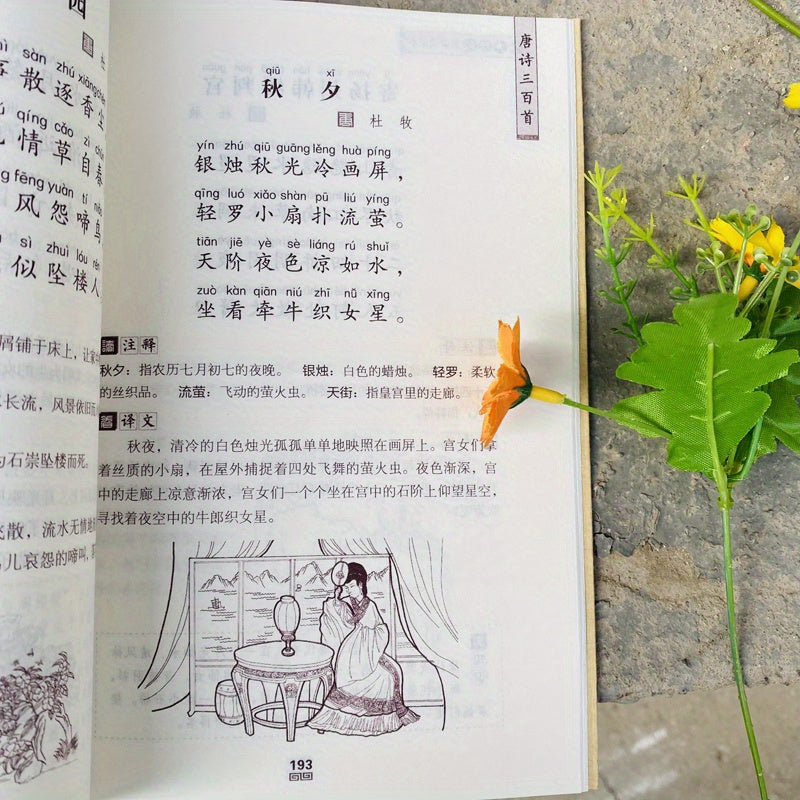 杜
sàn zhú xiāngchén
散逐香尘
qíng cǎo zì chūn
情草自春
fēng yuàn tí niǎo
风怨啼鸟
sì zhuì lóu rén
似坠楼人
屑铺于床上，让家
长流，风景依旧而
为石崇坠楼而死。
飞散，流水无情地
儿哀怨的啼叫，
唐诗三百首
qiū xī
秋夕
杜牧
yín zhú qiū guāng lěng huà píng
银烛秋光冷画屏，
qīng luó xiǎo shàn pū liú yíng
轻罗小扇扑流萤。
tiān jiē yè sè liáng rú shuǐ
天阶夜色凉如水，
zuò kàn qiān niú zhī nǚ xīng
坐看牵牛织女星。
注释
秋夕：指农历七月初七的夜晚。 银烛：白色的蜡烛。 轻罗：柔软
的丝织品。 流萤：飞动的萤火虫。 天街：指皇宫里的走廊。
译文
秋夜，清冷的白色烛光孤孤单单地映照在画屏上。宫女们拿
着丝质的小扇，在屋外捕捉着四处飞舞的萤火虫。夜色渐深，宫
中的走廊上凉意渐浓，宫女们一个个坐在宫中的石阶上仰望星空，
寻找着夜空中的牛郎织女星。
193